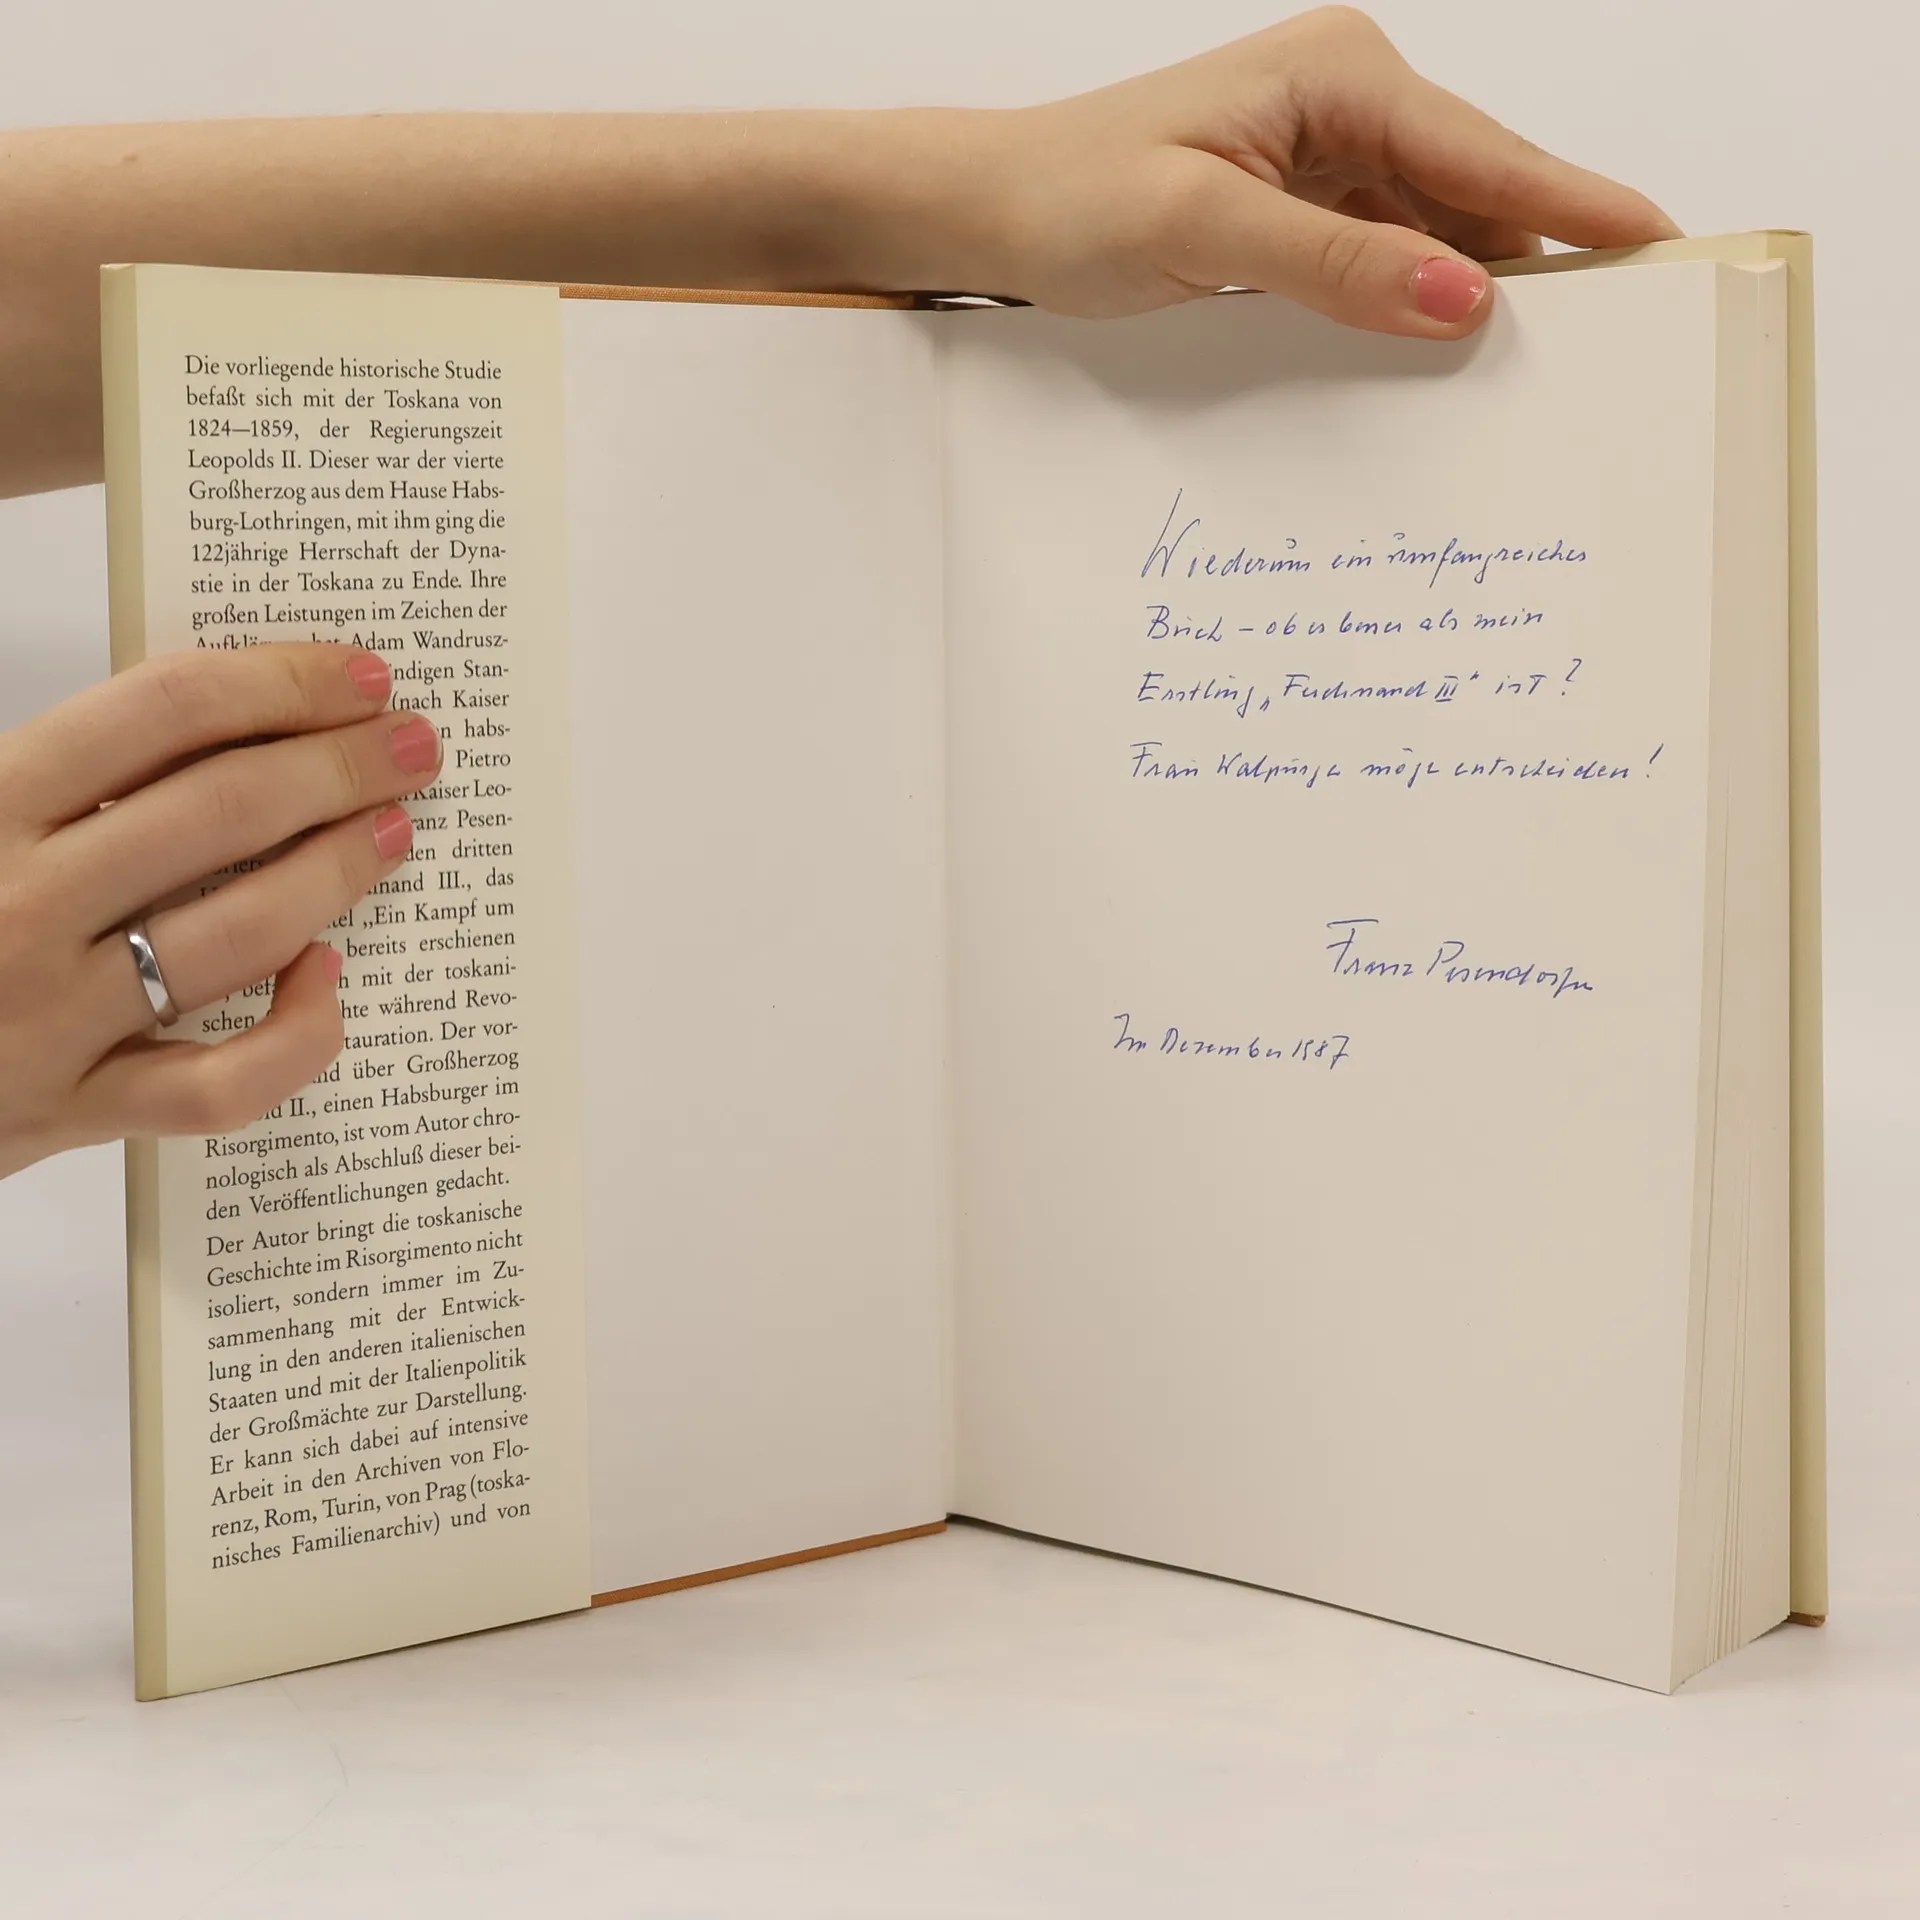 Die vorliegende historische Studie
befaßt sich mit der Toskana von
1824—1859, der Regierungszeit
Leopolds II. Dieser war der vierte
Großherzog aus dem Hause Habs-
burg-Lothringen, mit ihm ging die
122jährige Herrschaft der Dyna-
stie in der Toskana zu Ende. Ihre
großen Leistungen im Zeichen der
Adam Wandrusz-
ndigen Stan-
(nach Kaiser
n habs-
Pietro
Kaiser Leo-
anz Pesen-
den dritten
inand III., das
tel „Ein Kampf um
bereits erschienen
h mit der toskani-
schen hte während Revo-
tauration. Der vor-
nd über Großherzog
ld II., einen Habsburger im
Risorgimento, ist vom Autor chro-
nologisch als Abschluß dieser bei-
den Veröffentlichungen gedacht.
Der Autor bringt die toskanische
Geschichte im Risorgimento nicht
isoliert, sondern immer im Zu-
sammenhang mit der Entwick-
lung in den anderen italienischen
Staaten und mit der Italienpolitik
der Großmächte zur Darstellung.
Er kann sich dabei auf intensive
Arbeit in den Archiven von Flo-
renz, Rom, Turin, von Prag (toska-
nisches Familienarchiv) und von
Wiederum ein umfangreiches
Buch – ob es besser als mein
Erstling „Ferdinand III" ist?
Frau Walpurga möge entscheiden!
Franz Pesendorfer
Im Dezember 1987